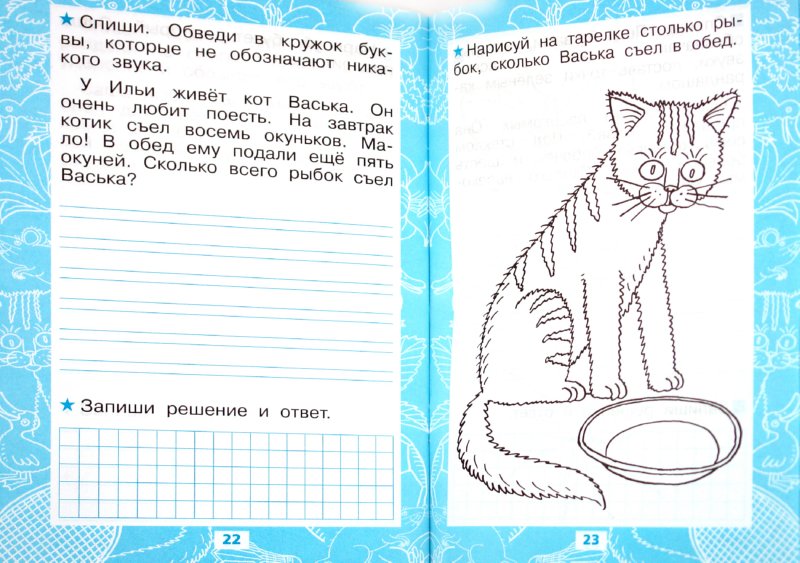 ★ Спиши. Обведи в кружок бук-
вы, которые не обозначают ника-
кого звука.
У Ильи живёт кот Васька. Он
очень любит поесть. На завтрак
котик съел восемь окуньков. Ма-
ло! В обед ему подали ещё пять
окуней. Сколько всего рыбок съел
Васька?
★ Запиши решение и ответ.
22
★ Нарисуй на тарелке столько ры-
бок, сколько Васька съел в обед.
23